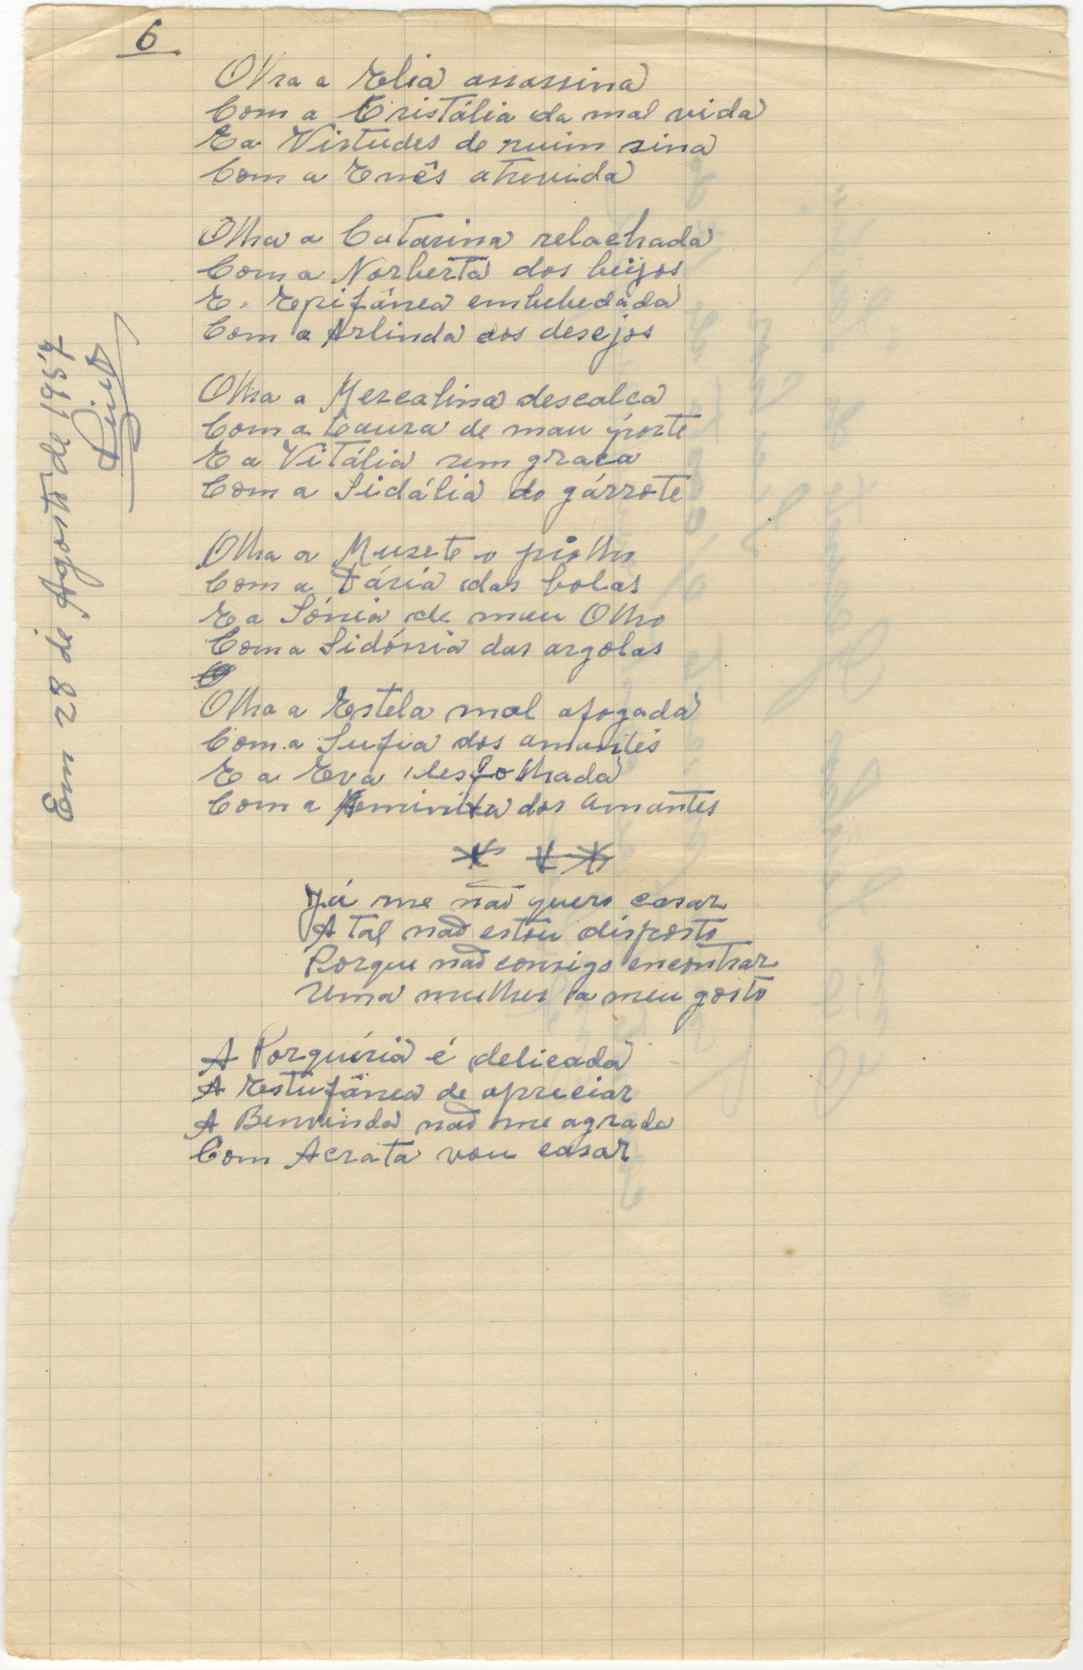 6
Olha a Elia assassina
Com a Cristália da mal vida
E a Virtudes de ruim sina
Com a Enês atrevida
Olha a Catarina relachada
Com a Norberta dos beijos
E a Epifánea embebedáda
Com a Arlinda dos desejos
Olha a Mercalina descalca
Com a Laura de mau pórte
E a Vitália sem graca
Com a Sidália do gárrote
Olha a Musete o piolho
Com a Dária das bolas
E a Sónia de mau Olho
Com a Sidónia das argolas
Olha a Estela mal afogada
Com a Sufia dos amantes
E a Eva desfolhada
Com a dos amantes
Já me não quero casar
A tal não estou disposto
Porque não consigo encontrar
Uma mulher a meu gosto
A Porquíria é delicada
A Estufánea de apreciar
A Benvinda não me agrada
Com Acrata vou casar
Em 28 de Agosto de 1957,